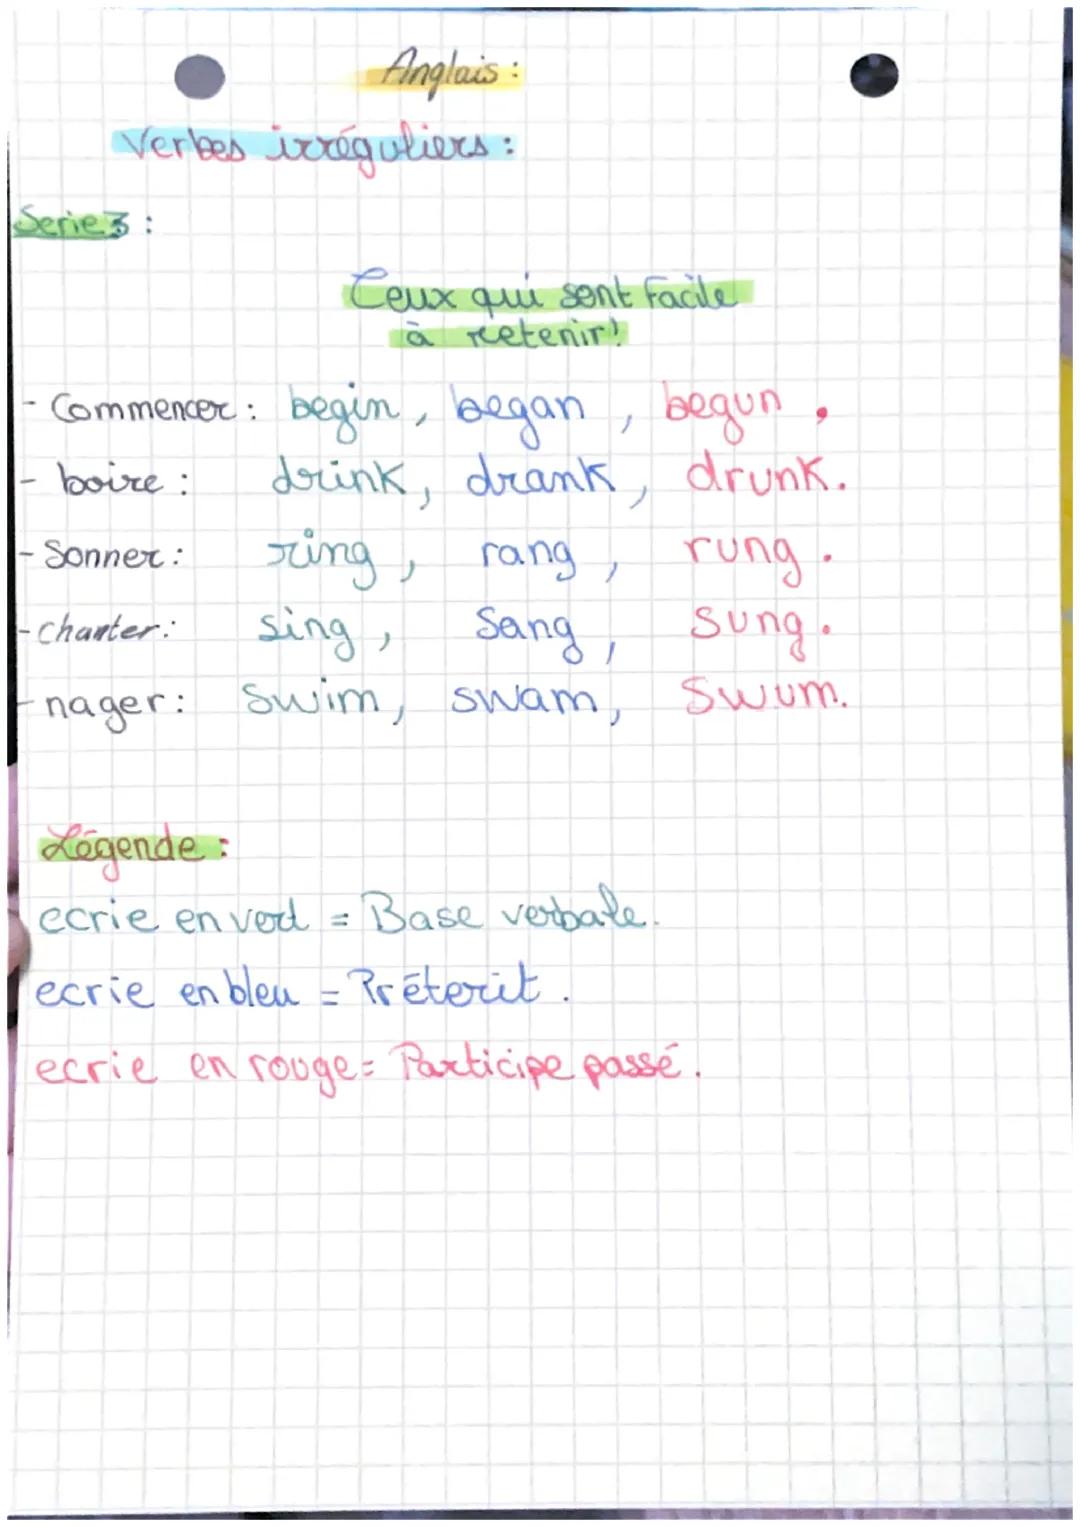 Anglais :
Verbes irréguliers :
Serie 3 :
Ceux qui sont facile
à retenir!
- Commencer : begin, began, begun.
- boire : drink, drank, drunk.
- Sonner : ring, rang, rung.
- chanter : sing, sang, sung.
- nager : swim, swam, swum.
Légende :
ecrie en vert = Base verbale.
ecrie en bleu = Préterit.
ecrie en rouge = Participe passé.